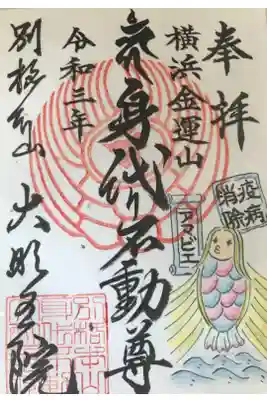 奉拝
横浜金運山
厄身代り不動尊
令和三年
別格本山 大明王院
疫病
消除
アマビエ